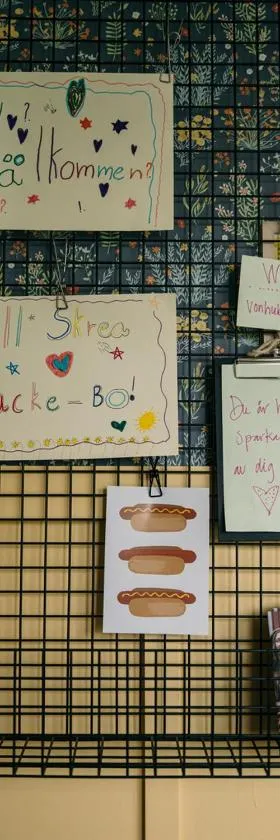 å lkommen?
ll Skrea
acke-Bo!
W
Vonhu
Du är
Sparka
av dig